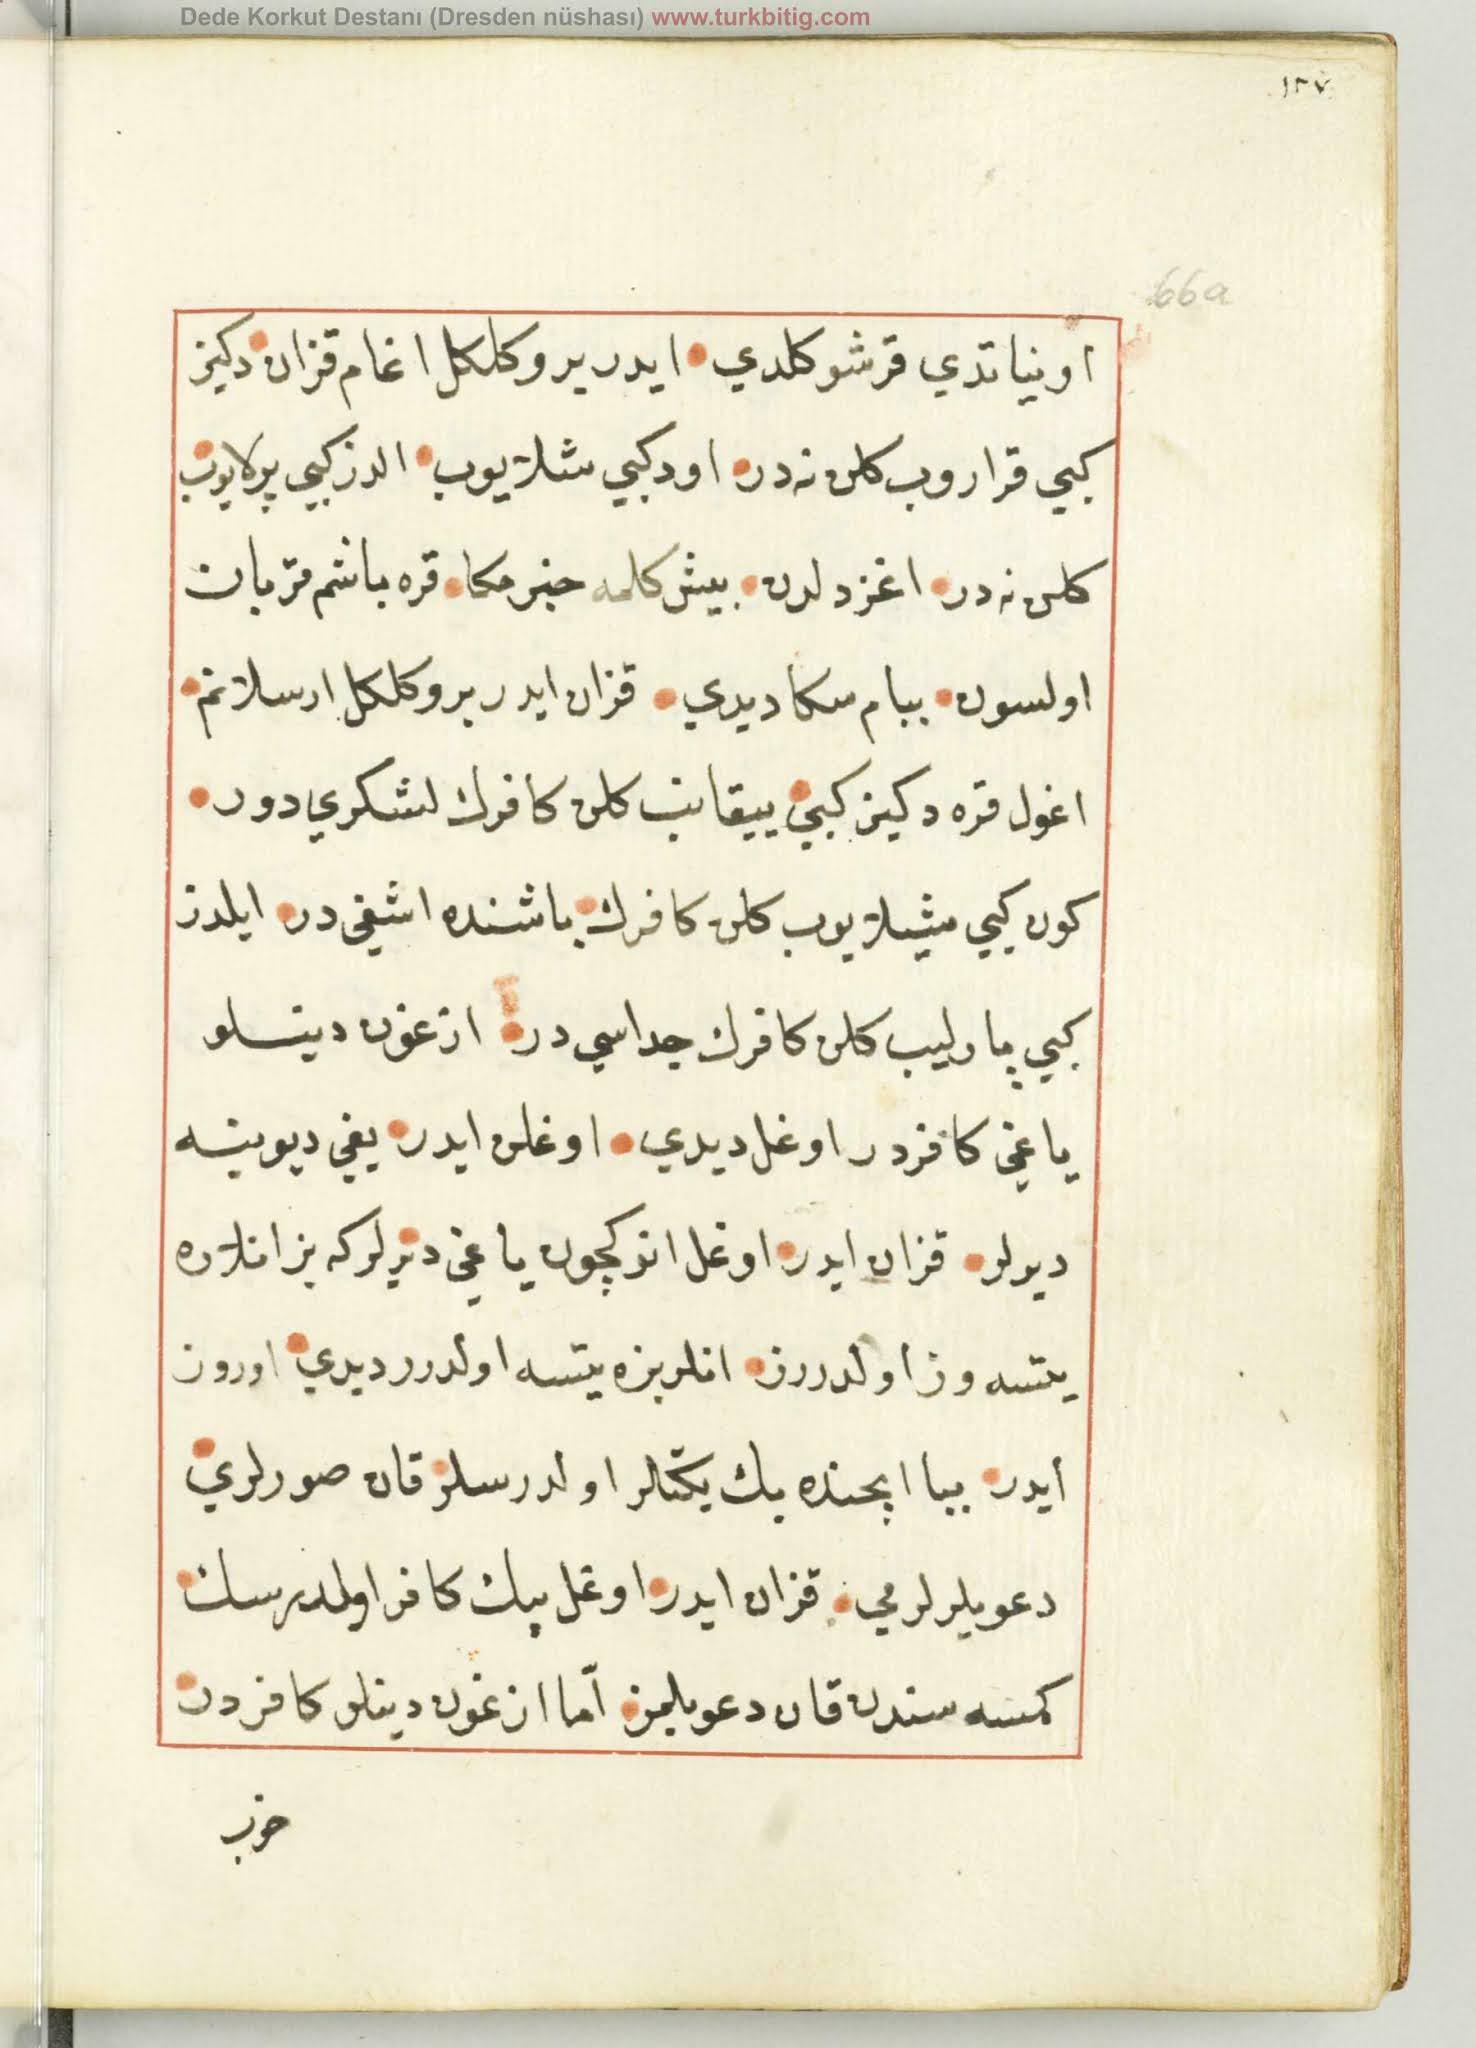 Dede Korkut Destanı (Dresden nüshası) www.turkbitig.com
١٣٧
66a
اوينا تدي قرشو كلدي ايدر برو كلكل اغام قزان دكيز
كبي قراروب كلن نه در اود كبي شلايوب الدز كبي پركلايوب
كلن نه در اغز دلدن بيش كلمه خبر مكا قره باشم قربان
اولسون ببام سكا ديدي قزان ايدر برو كلكل ارسلانم
اغول قره دكيز كبي ييقانب كلن كافرك لشكري دور
كون كبي ميشلايوب كلن كافرك باشنده اشغي در ايلدز
كبي پارليب كلن كافرك جداسي در ازغون دينلو
ياغي كافردر اوغل ديدي اوغلن ايدر يغي ديو ينه
ديرلر قزان ايدر اوغل انوكچون ياغي ديرلر كه بز انلاره
يتسه وز اولدررز انلر بزه يتسه اولدرر ديدي اوروز
ايدر ببا ايچنده بك يكتلر اولدرسلر قان صورلري
دعويلرلر مي قزان ايدر اوغل بيك كافر اولدرسك
كمسه سندن قان دعويلمز امّا ازغون دينلو كافردر
خوب